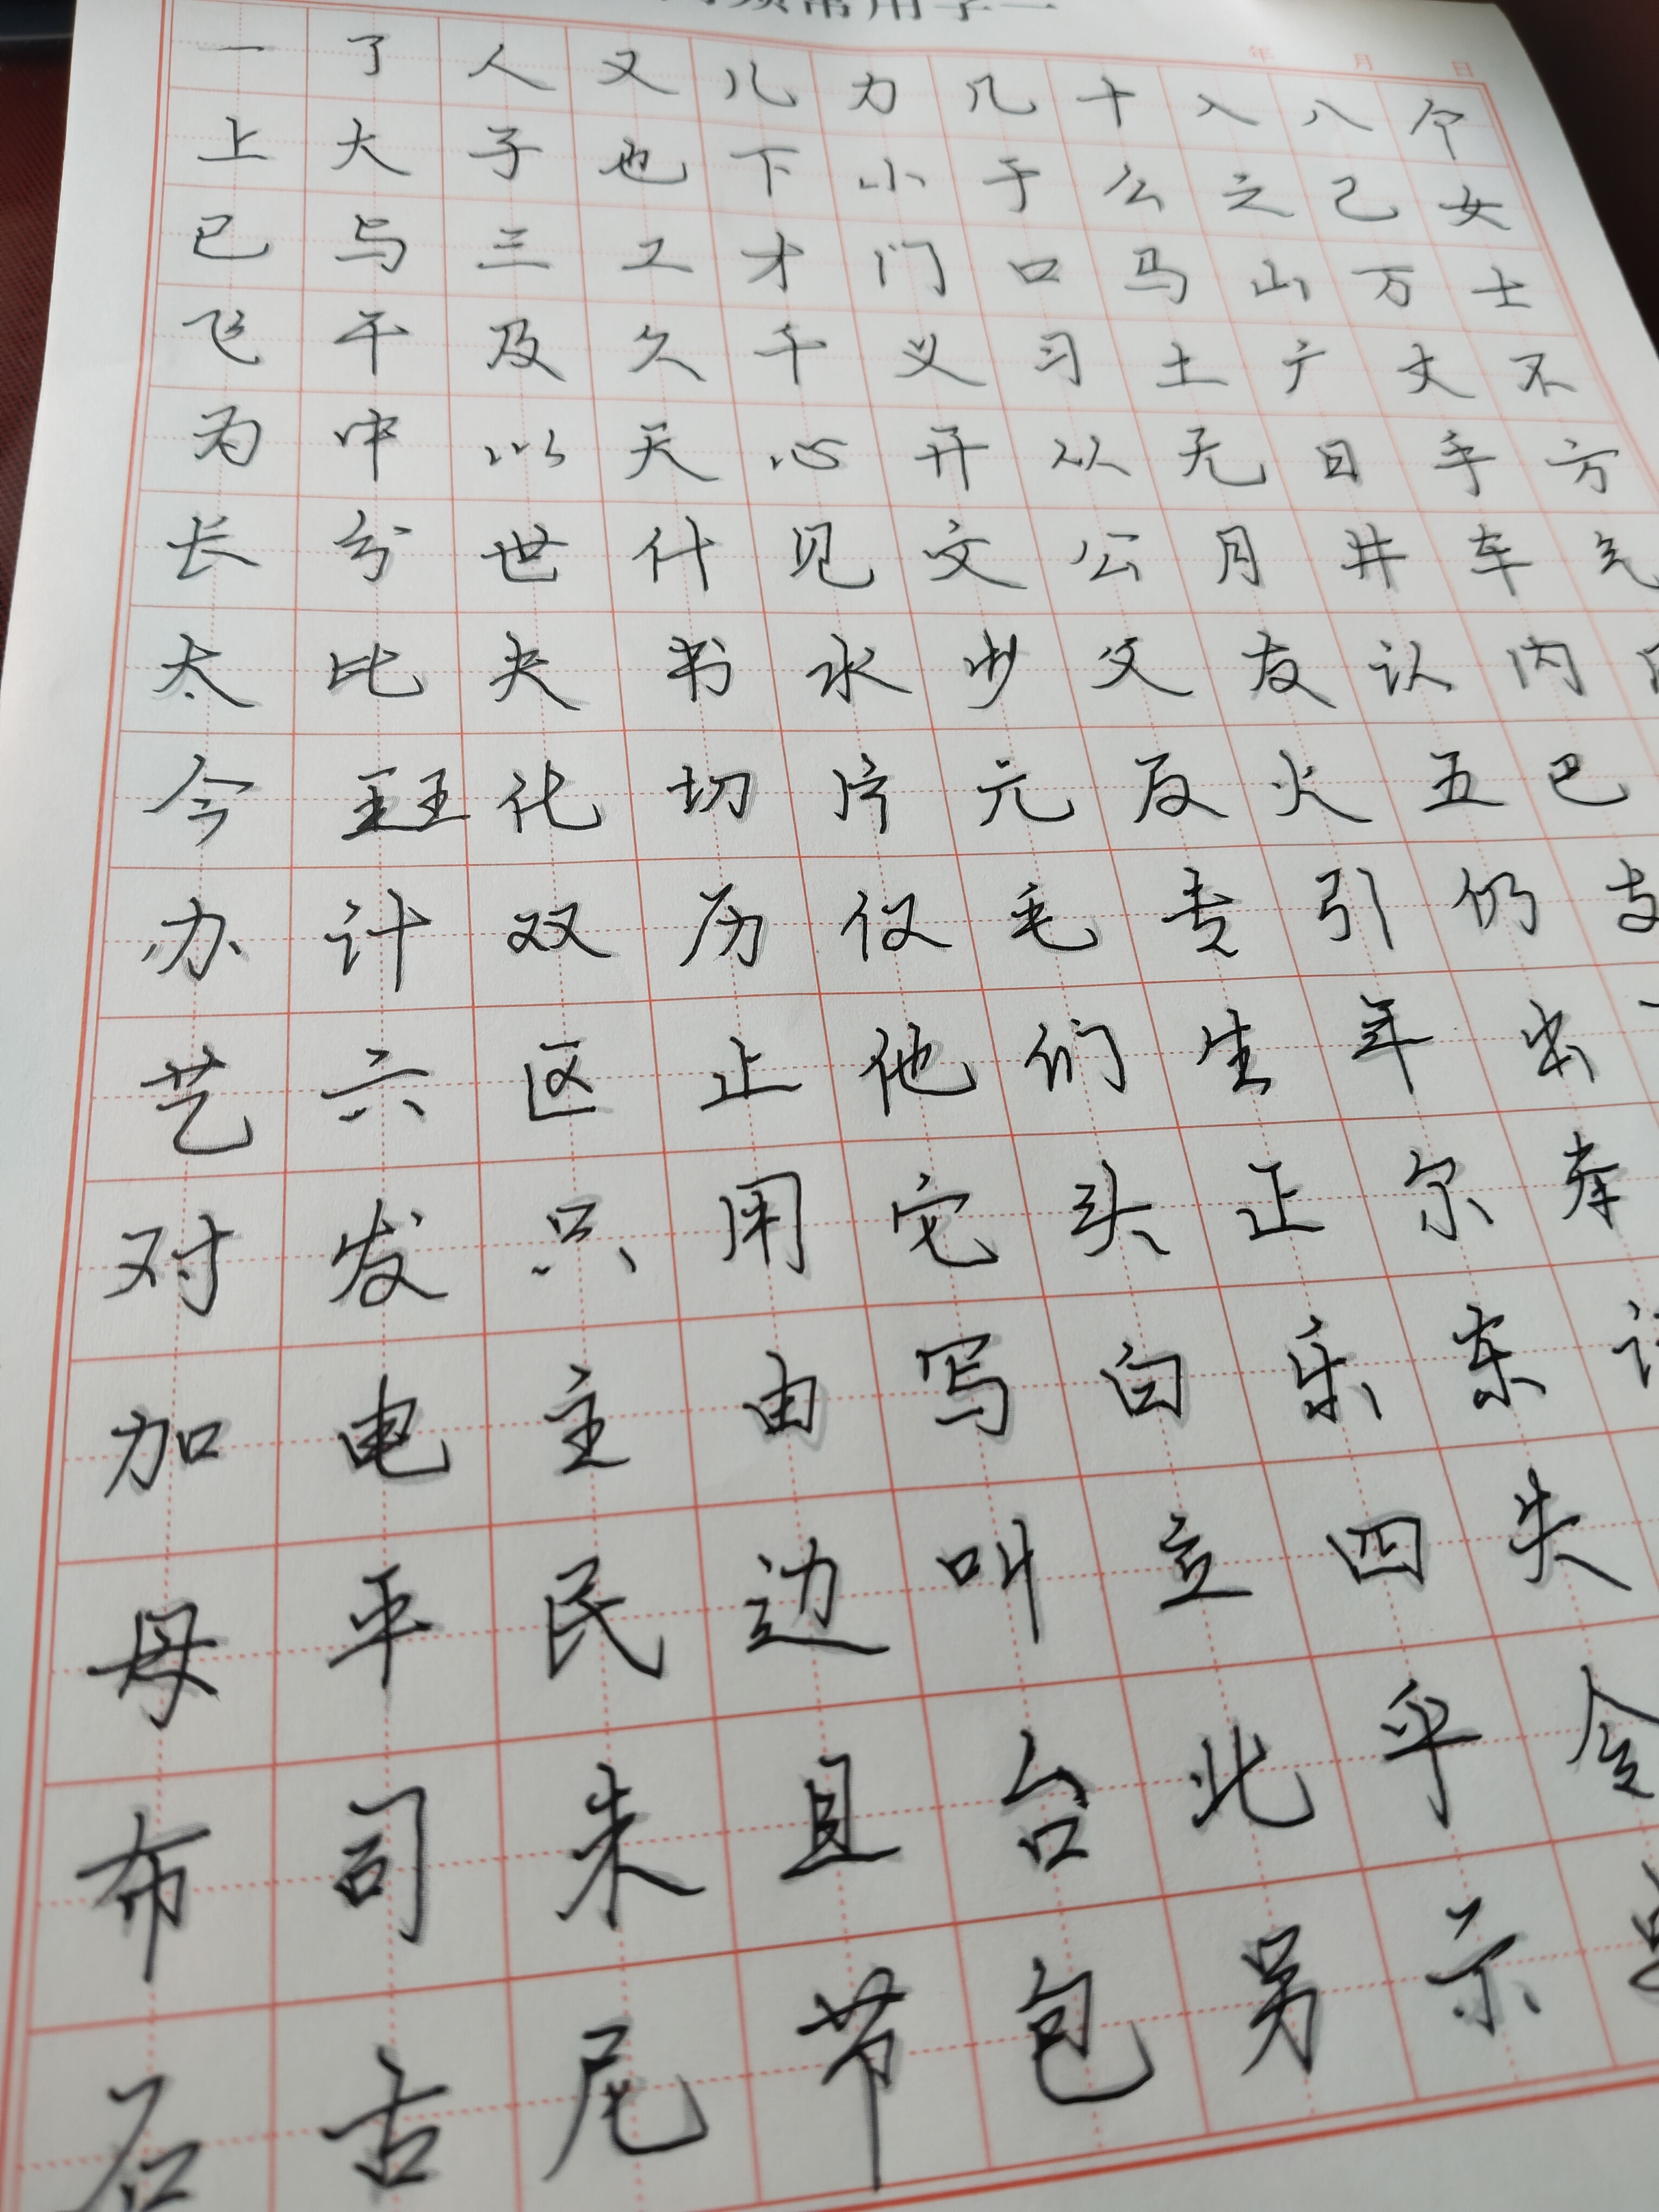 常用字一
年 月 日
一了人又儿力几十入八个
上大子也下小于么之己女
已与三工才门口马山万士
飞干及久千义习土广丈不
为中以天心开从无日手方
长分世什见文公月井车气
太比夫书水少父友认内
今王王化切片元反火五巴
办计双历仅毛专引仍支
艺六区止他们生年出
对发只用它头正尔本
加电主由写白乐东
母平民边叫立四失
布司未且台北乎令
石古尼节包另示